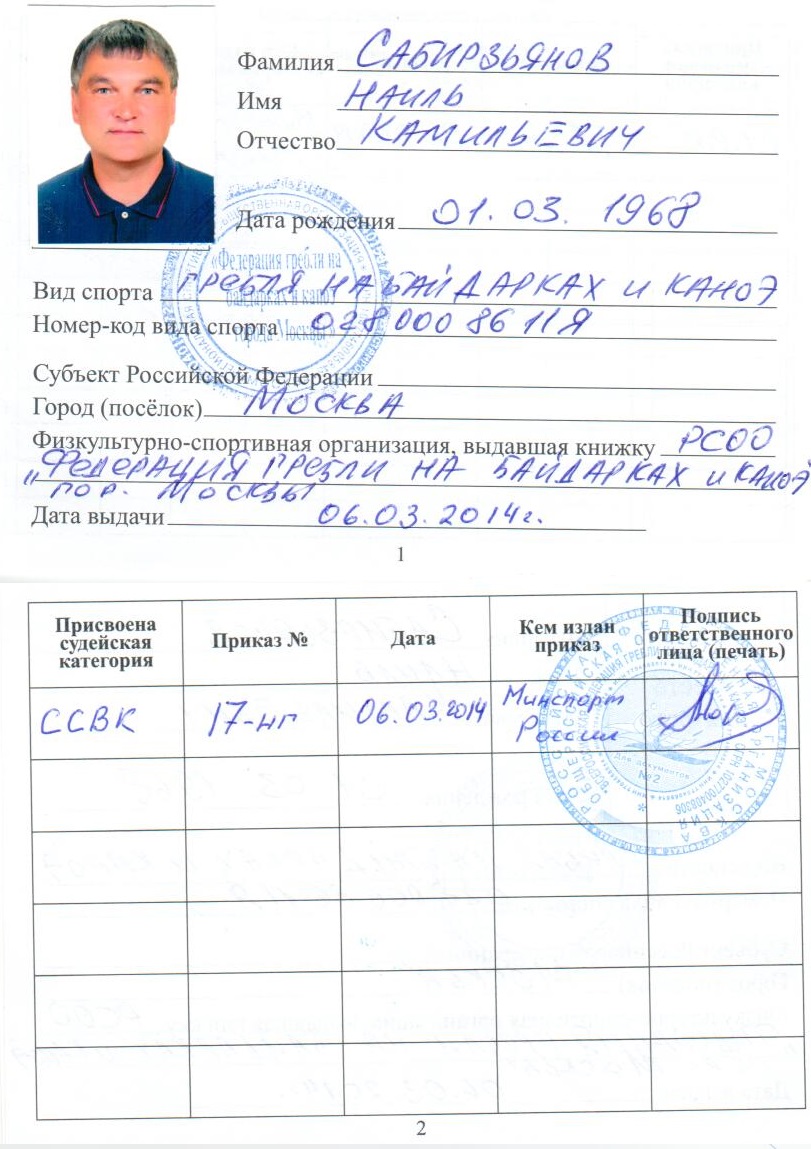 Фамилия САБИРЗЬЯНОВ
Имя НАИЛЬ
Отчество КАМИЛЬЕВИЧ
Дата рождения 01.03.1968
«Федерация гребли на
байдарках и каноэ
города Москвы»
Вид спорта ГРЕБЛЯ НА БАЙДАРКАХ И КАНОЭ
Номер-код вида спорта 0280008611Я
Субъект Российской Федерации
Город (посёлок) МОСКВА
Физкультурно-спортивная организация, выдавшая книжку РСОО
„ФЕДЕРАЦИЯ ГРЕБЛИ НА БАЙДАРКАХ И КАНОЭ"
гор. МОСКВЫ
Дата выдачи 06.03.2014г.
1
Присвоена судейская категория
Приказ №
Дата
Кем издан приказ
Подпись ответственного лица (печать)
ССВК
17-нг
06.03.2014
Минспорт России
Для документов
№2
ОГРН 1027700408306
МОСКВА
2